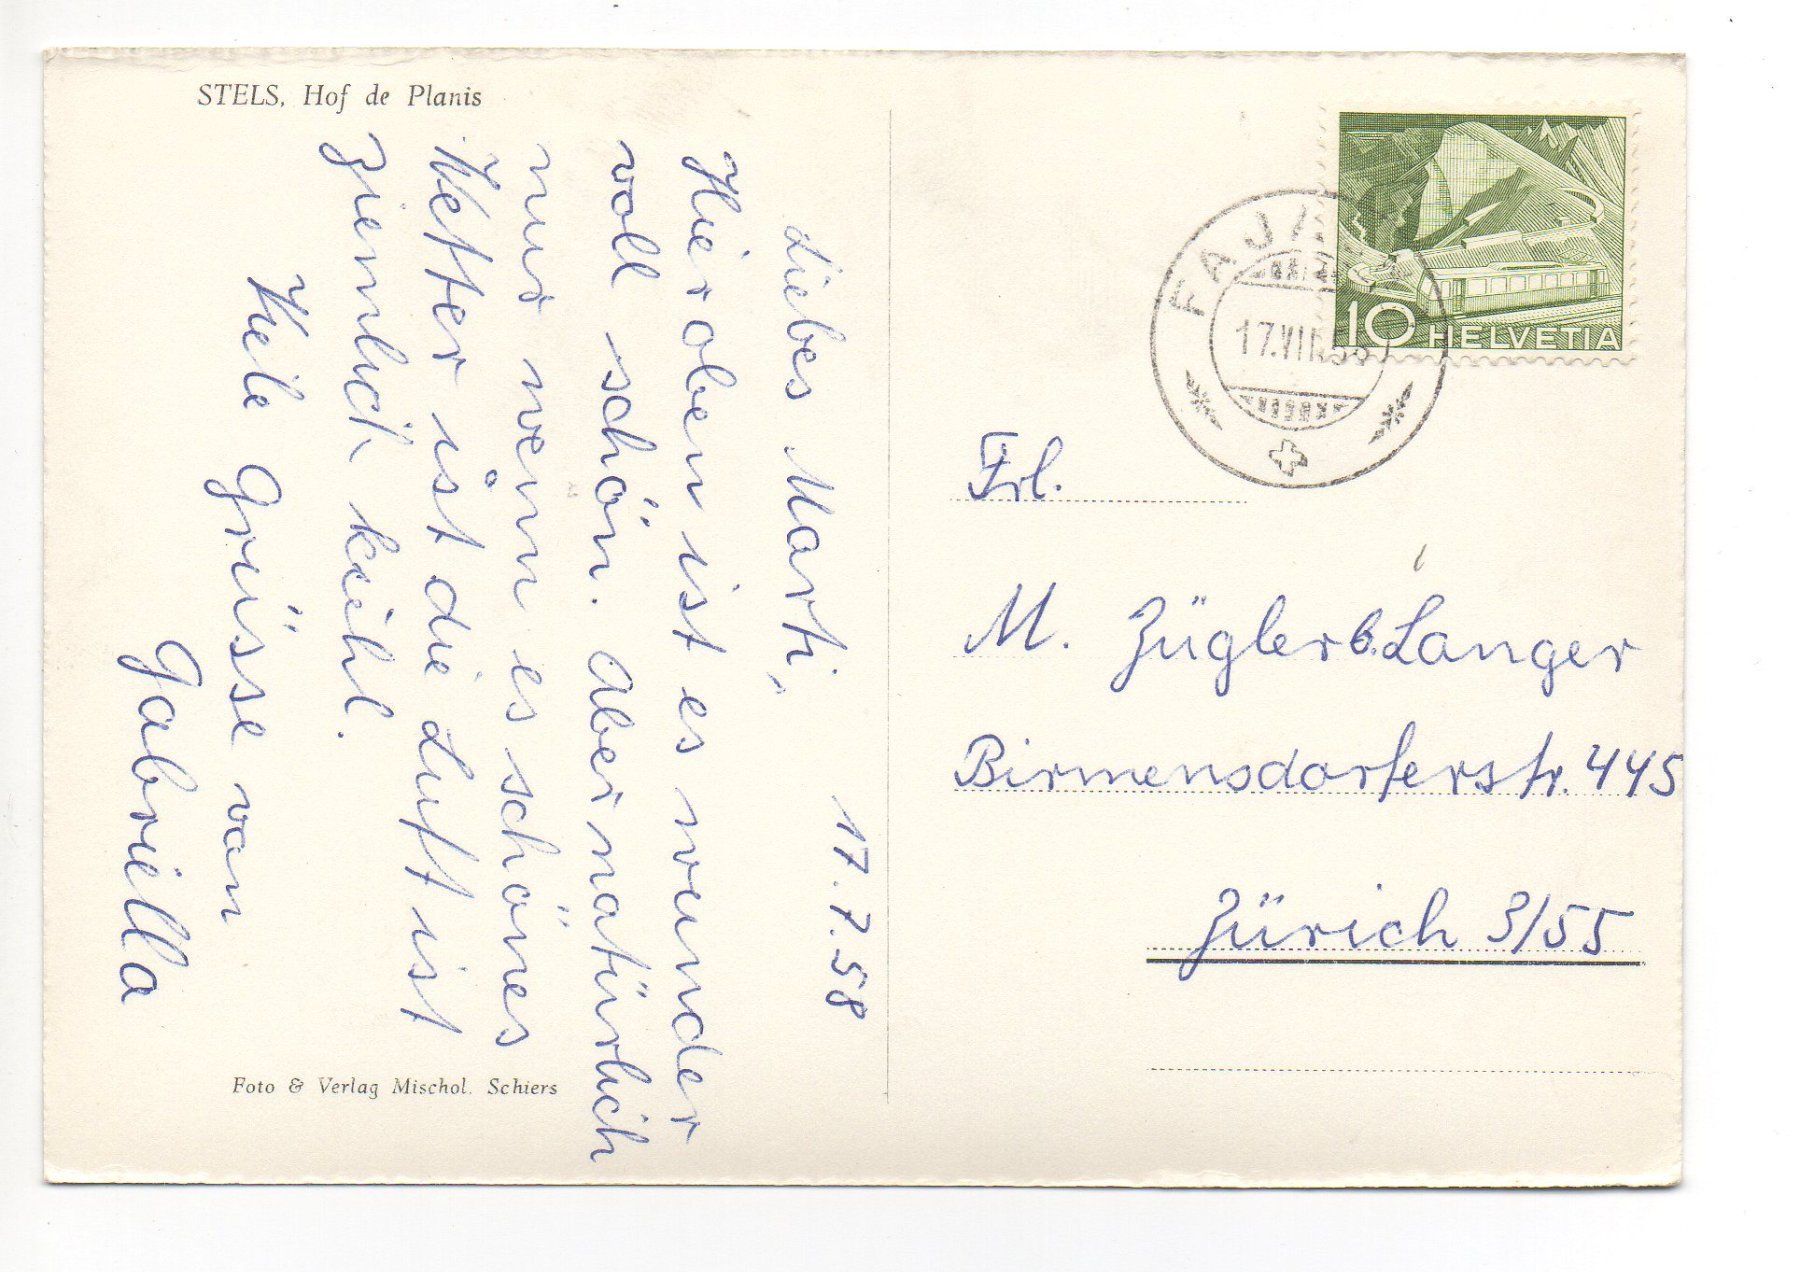 STELS, Hof de Planis
17.7.58
Liebes Marti,
Hier oben ist es wunder
voll schön. Aber natürlich
nur wenn es schönes
Wetter ist die Luft ist
ziemlich kühl.
Viele Grüsse von
Gabriella
Foto & Verlag Mischol, Schiers
10 HELVETIA
17.VII.58
Frl.
M. Zügler b. Langer
Birmensdorferstr. 445
Zürich 3/55